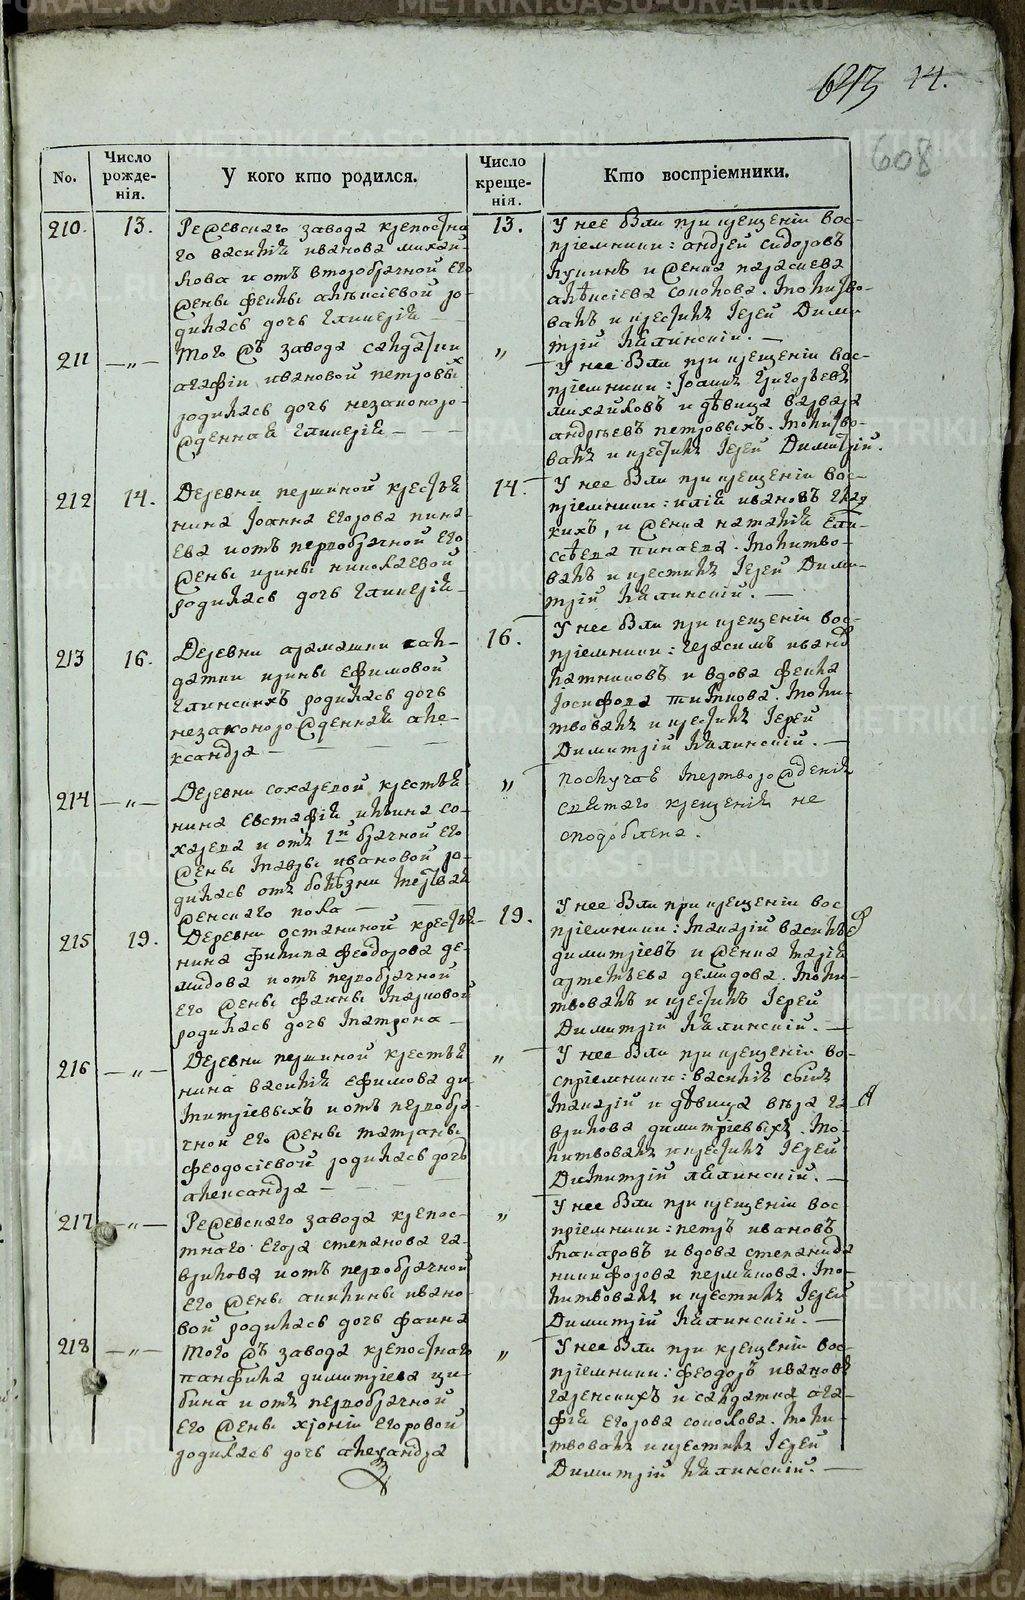 METRIKI.GASO-URAL.RU
643 14.
608
No.
Число рожде-нія.
У кого кто родился.
Число креще-нія.
Кто воспріемники.
210. 13.
Режевскаго завода крепостна
го василія иванова михай-
лова и отъ второбрачной его
жены феклы алексіевой ро-
дилась дочь гликерія
13.
У нее были при крещеніи вос-
пріемники: андрей сидоровъ
и жена
алексіева соколова. молитво-
валъ и крестилъ Іерей Дими-
трій Калинскій.
211 —„—
того жъ завода салдатки
агафіи ивановой петровых
родилась дочь незаконоро-
жденная гликерія
„
У нее были при крещеніи вос-
пріемники: Іоаннъ Григорьевъ
михайловъ и дѣвица варвара
андреевъ петровыхъ. молитво-
валъ и крестилъ Іерей Димитрій.
212 14.
Деревни першиной крестья
нина Іоанна Егорова пина-
ева и отъ первобрачной его
жены ирины николаевой
родилась дочь гликерія
14.
У нее были при крещеніи вос-
пріемники: илія ивановъ глад
кихъ, и жена наталія ели-
сеева пинаева. молитво-
валъ и крестилъ Іерей Дими-
трій Калинскій.
213 16.
Деревни арамашки сал-
датки ирины ефимовой
глинскихъ родилась дочь
незаконорожденная але-
ксандра
16.
У нее были при крещеніи вос-
пріемники: герасимъ иванов
латниковъ и вдова фекла
Іосифова молит-
твовалъ и крестилъ Іерей
Димитрій Калинскій.
214 —„—
Деревни сохаревой крестья
нина евстафія ильина со-
харева и отъ 1й брачной его
жены мавры ивановой ро-
дилась отъ болезни мертвая
женскаго пола
„
послучаю мерторожденія
святаго крещенія не
сподоблена.
215 19.
Деревни останиной крестья-
нина филипа феодорова де-
мидова и отъ первобрачной
его жены фаины марковой
родилась дочь матрона
19.
У нее были при крещеніи вос
пріемники: макарій василье
димитріевъ и жена марія
артемьева демидова. моли-
твовалъ и крестилъ Іерей
Димитрій Калинскій.
216 —„—
Деревни першиной крестья
нина василія ефимова ди
митріевыхъ и отъ первобра-
чной его жены татьяны
феодосіевой родилась дочь
александра
„
У нее были при крещеніи во-
спріемники: василій сынъ
макарій и дѣвица вера га-
врилова димитріевыхъ. мо-
литвовалъ и крестилъ Іерей
Димитрій Калинскій.
217 —„—
Режевскаго завода крепос-
тнаго егора степанова га-
врилова и отъ первобрачной
его жены акилины ивано-
вой родилась дочь фаина
„
У нее были при крещеніи вос
пріемники: петръ ивановъ
макаровъ и вдова степанида
никифорова пермякова. мо-
литвовалъ и крестилъ Іерей
Димитрій Калинскій.
218 —„—
того жъ завода крепостнаго
панфила димитріева ци-
бина и отъ первобрачной
его жены хіоніи егоровой
родилась дочь александра
„
У нее были при крещеніи вос-
пріемники: феодоръ ивановъ
и салдатка ага-
фія егорова соколова. моли-
твовалъ и крестилъ Іерей
Димитрій Калинскій.